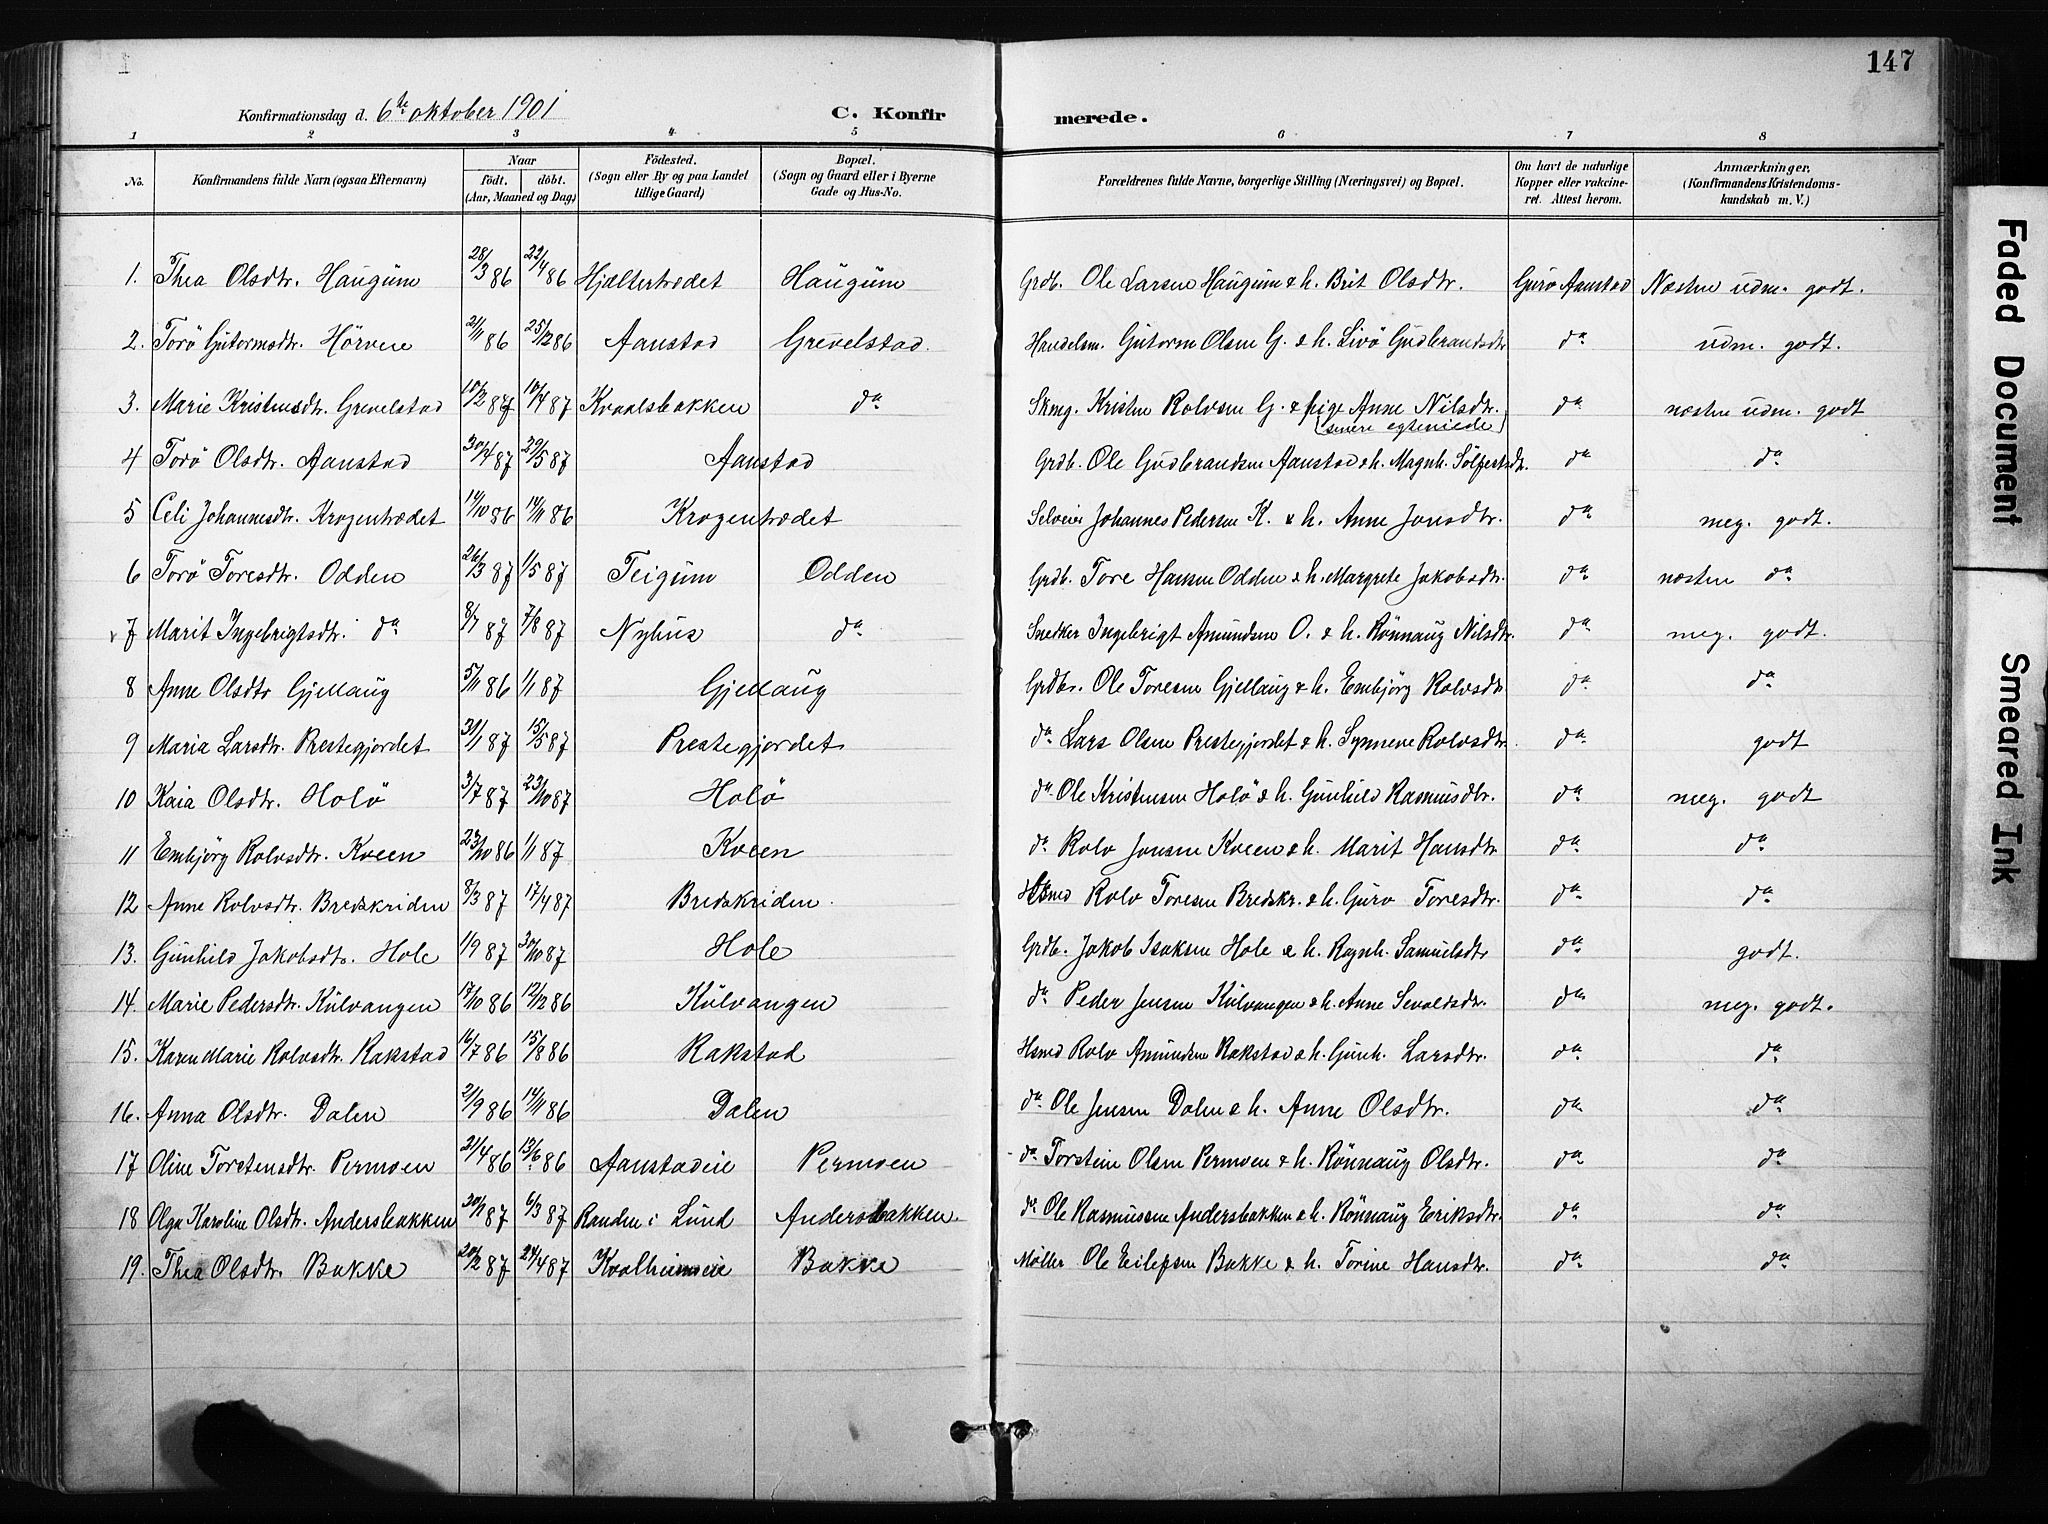 147
Konfirmationsdag d. 6te oktober 1901 C. Konfir merede.
1 2 3 4 5 6 7 8
No. Konfirmandens fulde Navn (ogsaa Efternavn) Naar født. døbt. (Aar, Maaned og Dag) Fødested. (Sogn eller By og paa Landet tillige Gaard) Bopæl. (Sogn og Gaard eller i Byerne Gade og Hus-No. Forældrenes fulde Navne, borgerlige Stilling (Næringsvei) og Bopæl. Om havt de naturlige Kopper eller vakcineret. Attest herom. Anmærkninger, (Konfirmandens Kristendomskundskab m. V.)
1. Thea Olsdtr. Haugum 28/3 86 22/4 86 Hjeltertrædet Haugum Grdb. Ole Larsen Haugum & h. Brit Olsdtr. Guro Aanstad Næsten udm. godt.
2. Torø Gutormsdtr. Hörven 2/11 86 25/12 86 Aanstad Grevelstad. Handelsm. Gutorm Olsen G. & h. Livö Gudbrandsdtr do udm. godt.
3. Marie Kristensdtr. Grevelstad 18/2 87 10/4 87 Kvaalsbakken do Skmg. Kristen Rolvsen G. & pige Anne Nilsdtr. (senere egteviede) do næsten udm. godt
4 Torö Olsdtr. Aanstad 30/4 87 29/5 87 Aanstad Grdb. Ole Gudbrandsen Aanstad & h. Magnh. Sölfestsdtr. do do
5 Celi Johannesdtr. Krogentrædet 14/10 86 14/11 86 Krogentrædet Selveier Johannes Pedersen K. & h. Anne Jonsdtr. do meg. godt.
6 Torö Toresdtr. Odden 26/3 87 1/5 87 Teigum Odden Grdb. Tore Hansen Odden & h. Margrete Jakobsdtr. do næsten do
7 Marit Ingebrigtsdtr. do 8/7 87 7/8 87 Nyhus do Snekker Ingebrigt Amundsen O. & h. Rönnaug Nilsdtr. do meg. godt.
8 Anne Olsdtr Gjellaug 5/11 86 1/1 87 Gjellaug Grdbr. Ole Toresen Gjellaug & h. Embjörg Rolvsdtr do do
9 Maria Larsdtr. Prestegjordet 31/1 87 15/5 87 Prestegjordet do Lars Olsen Prestegjordet & h. Synneve Rolvsdtr. do godt
10 Kaia Olsdtr. Holö 3/7 87 23/10 87 Holö do Ole Kristensen Holö & h. Gunhild Rasmusdtr. do meg. godt
11 Embjörg Rolvsdtr. Kveen 23/10 86 1/1 87 Kveen do Rolv Jonsen Kveen & h. Marit Hansdtr do do
12 Anne Rolvsdtr. Bredskriden 8/3 87 17/4 87 Bredskriden. Hsmd Rolv Toresen Bredskr. & h. Guro Toresdtr. do do
13. Gunhild Jakobsdtr. Hole 1/9 87 30/10 87 Hole Grdb. Jakob Isaksen Hole & h. Ragnh. Samuelsdtr do godt.
14. Marie Pedersdtr. Kulvangen 17/10 86 12/12 86 Kulvangen do Peder Jensen Kulvangen & h. Anne Sevaldsdtr. do meg. godt.
15. Karen Marie Rolvsdtr. Rakstad 16/7 86 15/8 86 Rakstad Hsmd Rolv Amunden Rakstad & h. Gunh. Larsdtr. do do
16. Anna Olsdtr. Dalen 21/9 86 14/11 86 Dalen do Ole Jensen Dalen & h. Anne Olsdtr. do do
17 Oline Torstensdtr. Permoen 21/4 86 13/6 86 Aanstadeie Permoen do Torstein Olsen Permoen & h. Rönnaug Olsdtr. do do
18 Olga Karoline Olsdtr. Andersbakken 30/1 87 6/3 87 Randen i Lund Andersbakken. do Ole Rasmussen Andersbakken & h. Rönnaug Eriksdtr. do do
19. Thea Olsdtr. Bakke 20/2 87 24/4 87 Kvalheimeie Bakke Møller Ole Eilefsen Bakke & h. Torine Hansdtr. do do
Faded Document
Smeared Ink